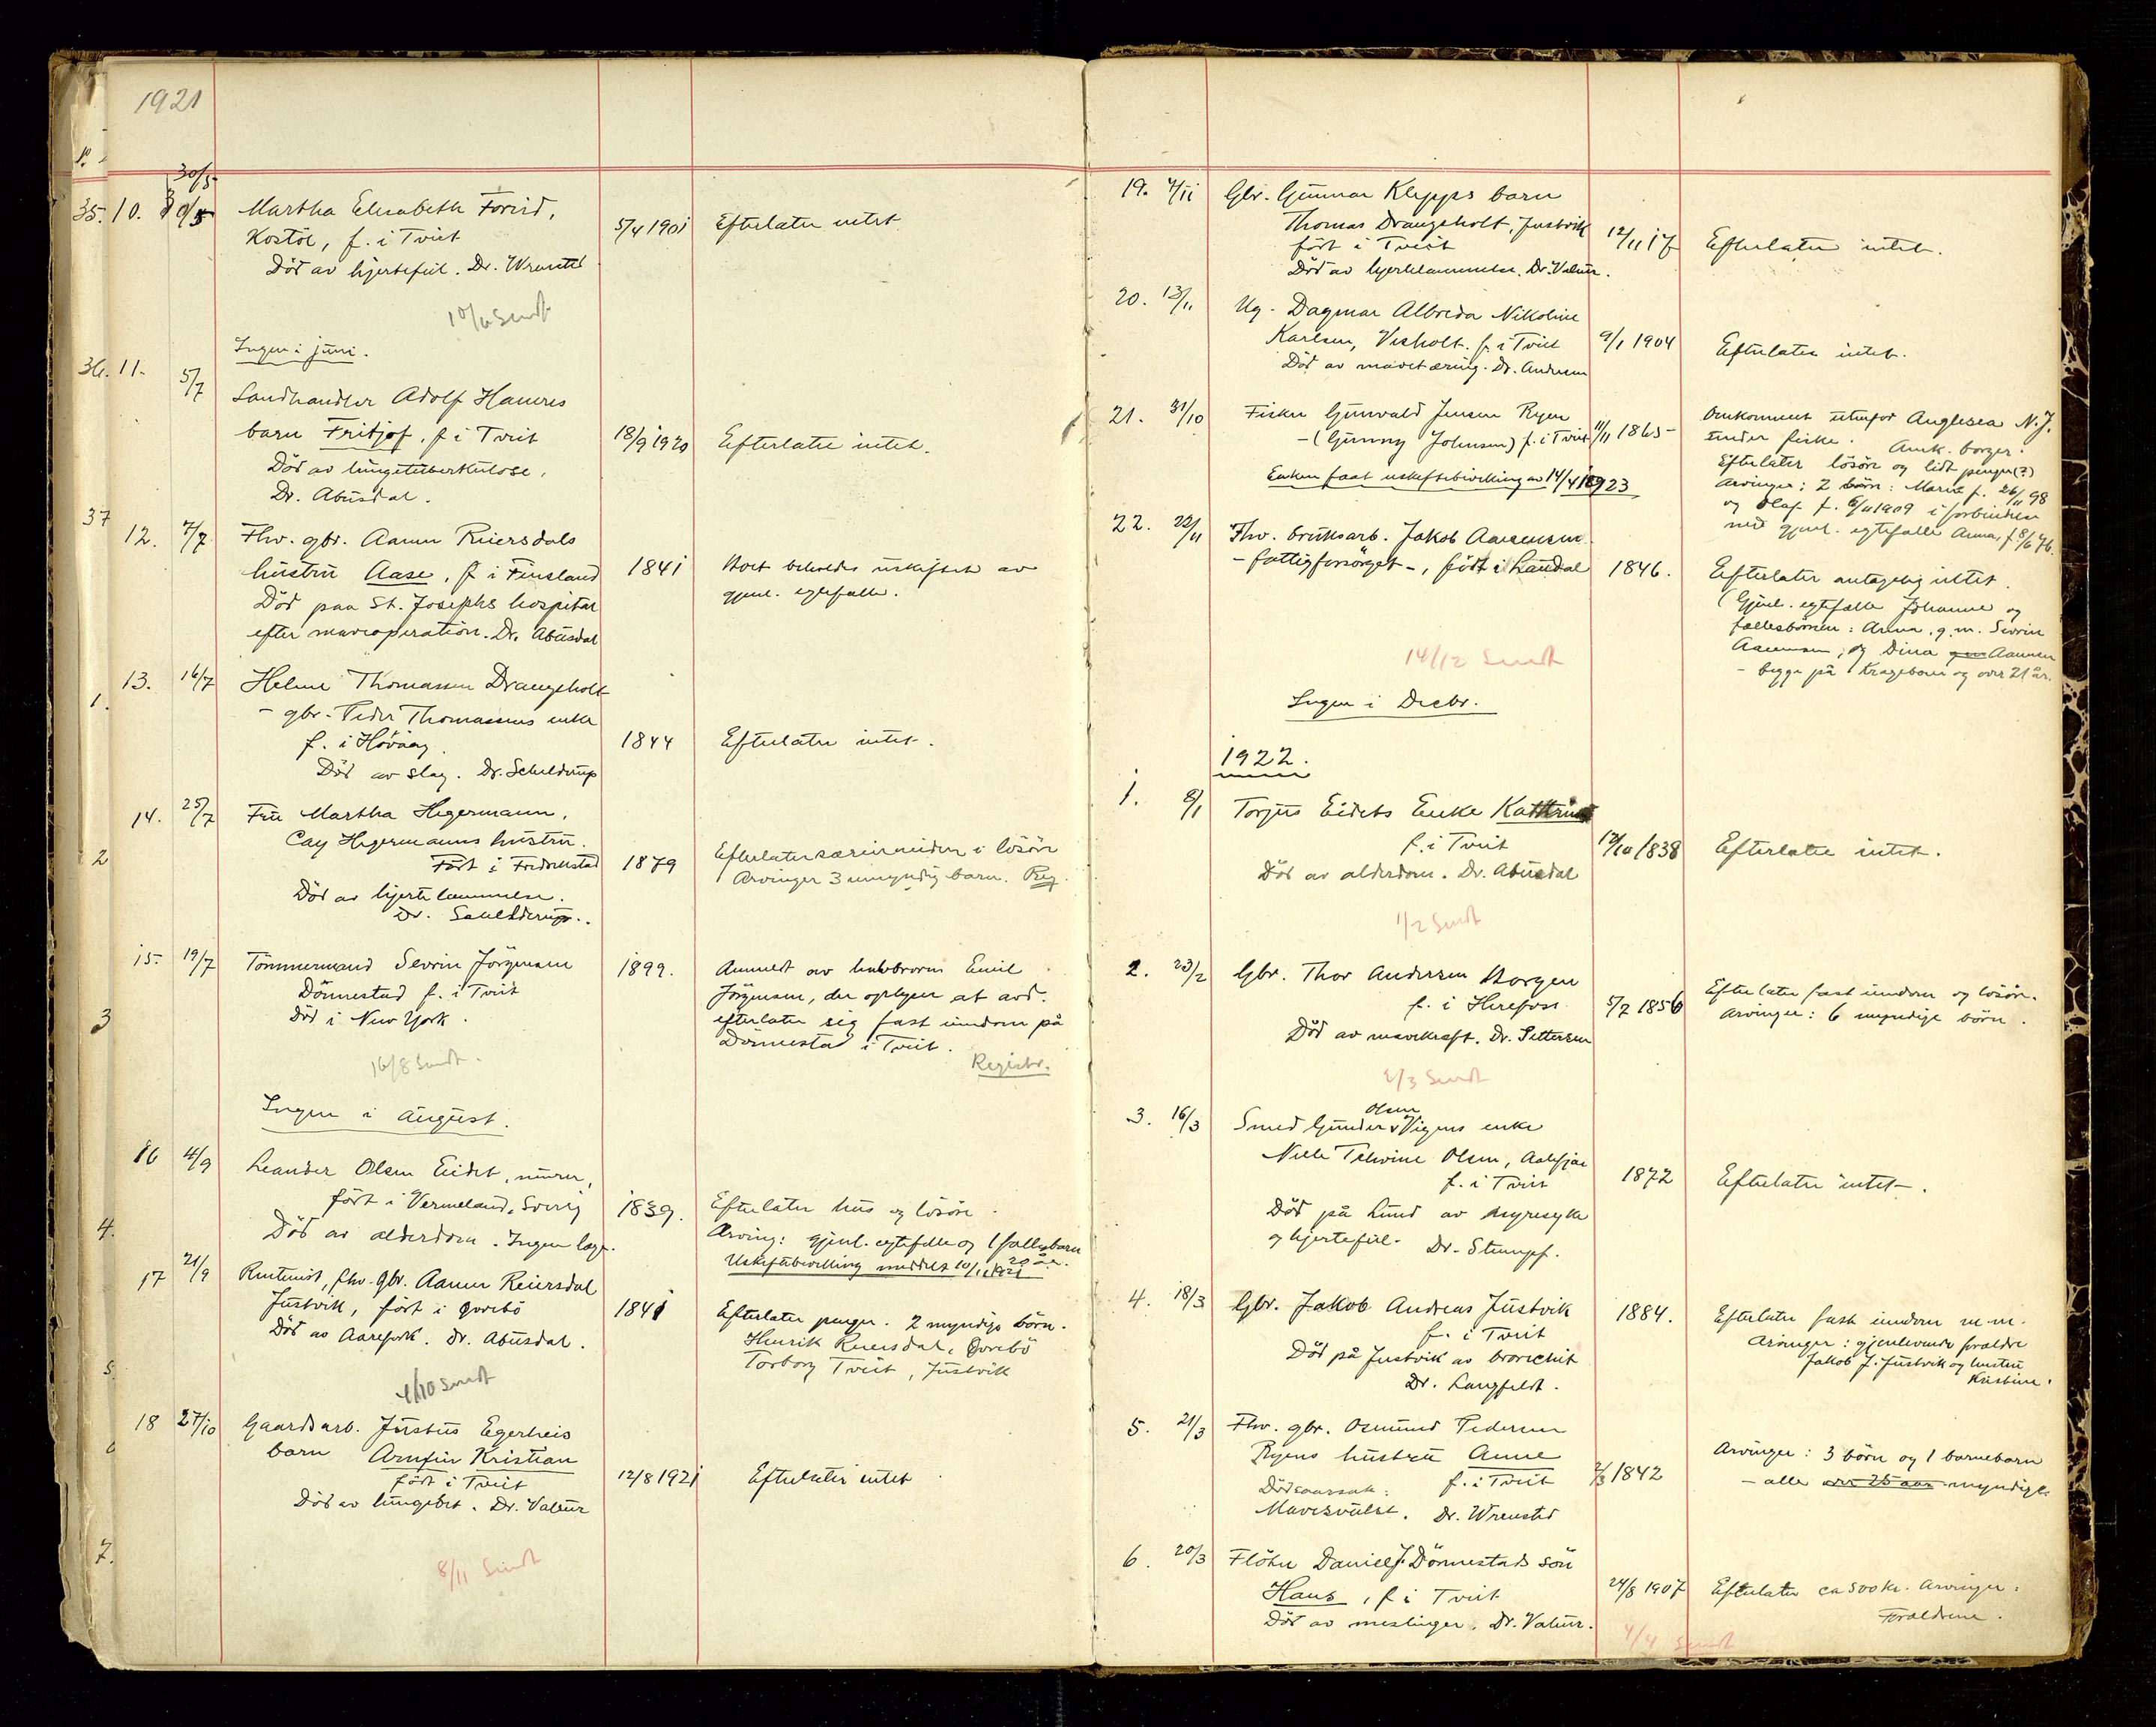 1921
30/5
35. 10. 30/5 Martha Elisabeth
Kostöl, f. i Tveit 5/4 1901 Efterlater intet
Död av hjertefeil. Dr. Wrensted
10/6 Sendt
Ingen i juni.
36. 11. 5/7 Landhandler Adolf Hamres
barn Fritjof, f. i Tveit 18/9 1920 Efterlater intet.
Död av lungetuberkulose.
Dr. Abusdal.
37
12. 7/7 Fhv. gbr. Aanen Reiersdals
hustru Aase, f. i Finsland 1841 Boet beholdes uskiftet av
gjenl. egtefælle.
Död paa St. Josephs hospital
efter maveoperation. Dr. Abusdal
13. 16/7 Helene Thomassen Drangsholt
- gbr. Peder Thomassens enke
f. i Høvåg. 1844 Efterlater intet.
Död av slag. Dr. Scheldrup
14. 25/7 Fru Martha Hegermann,
Cay Hegermanns hustru.
Født i Fredrikstad 1879 Efterlater særeiemidler i lösöre
Arvinger 3 umyndig barn. Reg.
Död av hjertelammelse.
Dr.
15. 19/7 Tömmermand Sevrin Jörgensen 1899. Anmeldt av halvbroren Emil
Dönnestad f. i Tveit Jörgensen, der oplyser at avd.
Död i New York. efterlater sig fast eiendom på
Dönnestad i Tveit.
16/8 Sendt. Registr.
Ingen i august.
16 4/9 Leander Olsen Eidet, murer,
født i Vermeland, Sverig 1839. Efterlater hus og lösöre.
Död av alderdom. Ingen læge. Arving: gjenl. egtefelle og 1 fællesbarn
20 år.
Uskiftebevilling meddelt 10/11 1921
17 21/9 Rentenist, fhv. gbr. Aanen Reiersdal
Justvik, født i Øvrebö 1841 Efterlater penger. 2 myndige börn.
Död av Aarefork. Dr. Abusdal. Henrik Reiersdal, Øvrebö
Torborg Tveit, Justvik
4/10 Sendt
18 27/10 Gaardsarb. Justus Egerheis
barn Arnfin Kristian
født i Tveit 12/8 1921 Efterlater intet
Död av lungebet. Dr. Valeur
8/11 Sendt
19. 7/11 Gbr. Gunnar Klepps barn
Thomas Drangsholt, Justvik
født i Tveit 12/11 17 Efterlater intet.
Död av hjertelammelse. Dr. Valeur.
20. 13/11 Ug. Dagmar Albreda Nikoline
Karlsen, Vesholt. f. i Tveit 9/1 1904 Efterlater intet.
Död av mavetæring. Dr. Andersen
21. 31/10 Fisker Gunvald Jensen Ryen
- (Gunny Johnson) f. i Tveit 11/11 1865 Omkommet utenfor Anglesea N.J.
under fiske. Amk. borger.
Efterlater lösöre og lidt penger (?)
Arvinger: 2 börn: Marie f. 26/11 98
og Olaf f. 6/11 1909 i forbindelse
med gjenl. egtefælle Anna, f. 8/6 76.
Enken faat uskiftebevilling av 14/4 1923
22. 22/11 Fhv. bruksarb. Jakob Aanensen
- fattigforsörget -, født i Laudal 1846. Efterlater antagelig intet.
(Gjenl. egtefælle Johanne og
fællesbörnene: Anna, g. m. Sevrin
Aanensen, og Dina Aanensen
- begge på Kragebom og over 21 år.
14/12 Sendt
Ingen i Decbr.
1922.
1. 8/1 Torjus Eidets Enke Kathrine
f. i Tveit 12/10 1838 Efterlater intet.
Död av alderdom. Dr. Abusdal
1/2 Sendt
2. 23/2 Gbr. Thor Andersen Borgen
f. i Herefoss 5/7 1856 Efterlater fast eiendom og lösöre.
Arvinger: 6 myndige börn.
Död av mavekræft. Dr. Pettersen
2/3 Sendt
3. 16/3 Smed Gunder Olsen Vigens enke
Olsen, Aalefjær
f. i Tveit 1872 Efterlater intet.
Död på Lund av nyresyke
og hjertefeil. Dr. Stumpf.
4. 18/3 Gbr. Jakob Andreas Justvik 1884. Efterlater fast eiendom m.m.
f. i Tveit Arvinger: gjenlevende forældre
Död på Justvik av bronchit Jakob J. Justvik og hustru
Dr. Langfeldt. Kristine.
5. 21/3 Fhv. gbr. Osmund Pedersen
Ryens hustru Anne Arvinger: 3 börn og 1 barnebarn
f. i Tveit 2/3 1842 - alle over 25 aar myndige
Dödsaarsak:
Mavesvulst. Dr. Wrensted
6. 20/3 Flöter Daniel J. Dönnestads sön
Hans, f. i Tveit 24/8 1907 Efterlater ca 500 kr. Arvinger:
Forældrene.
Död av meslinger. Dr. Valeur.
4/4 Sendt
1.
2
3
4.
5.
7.